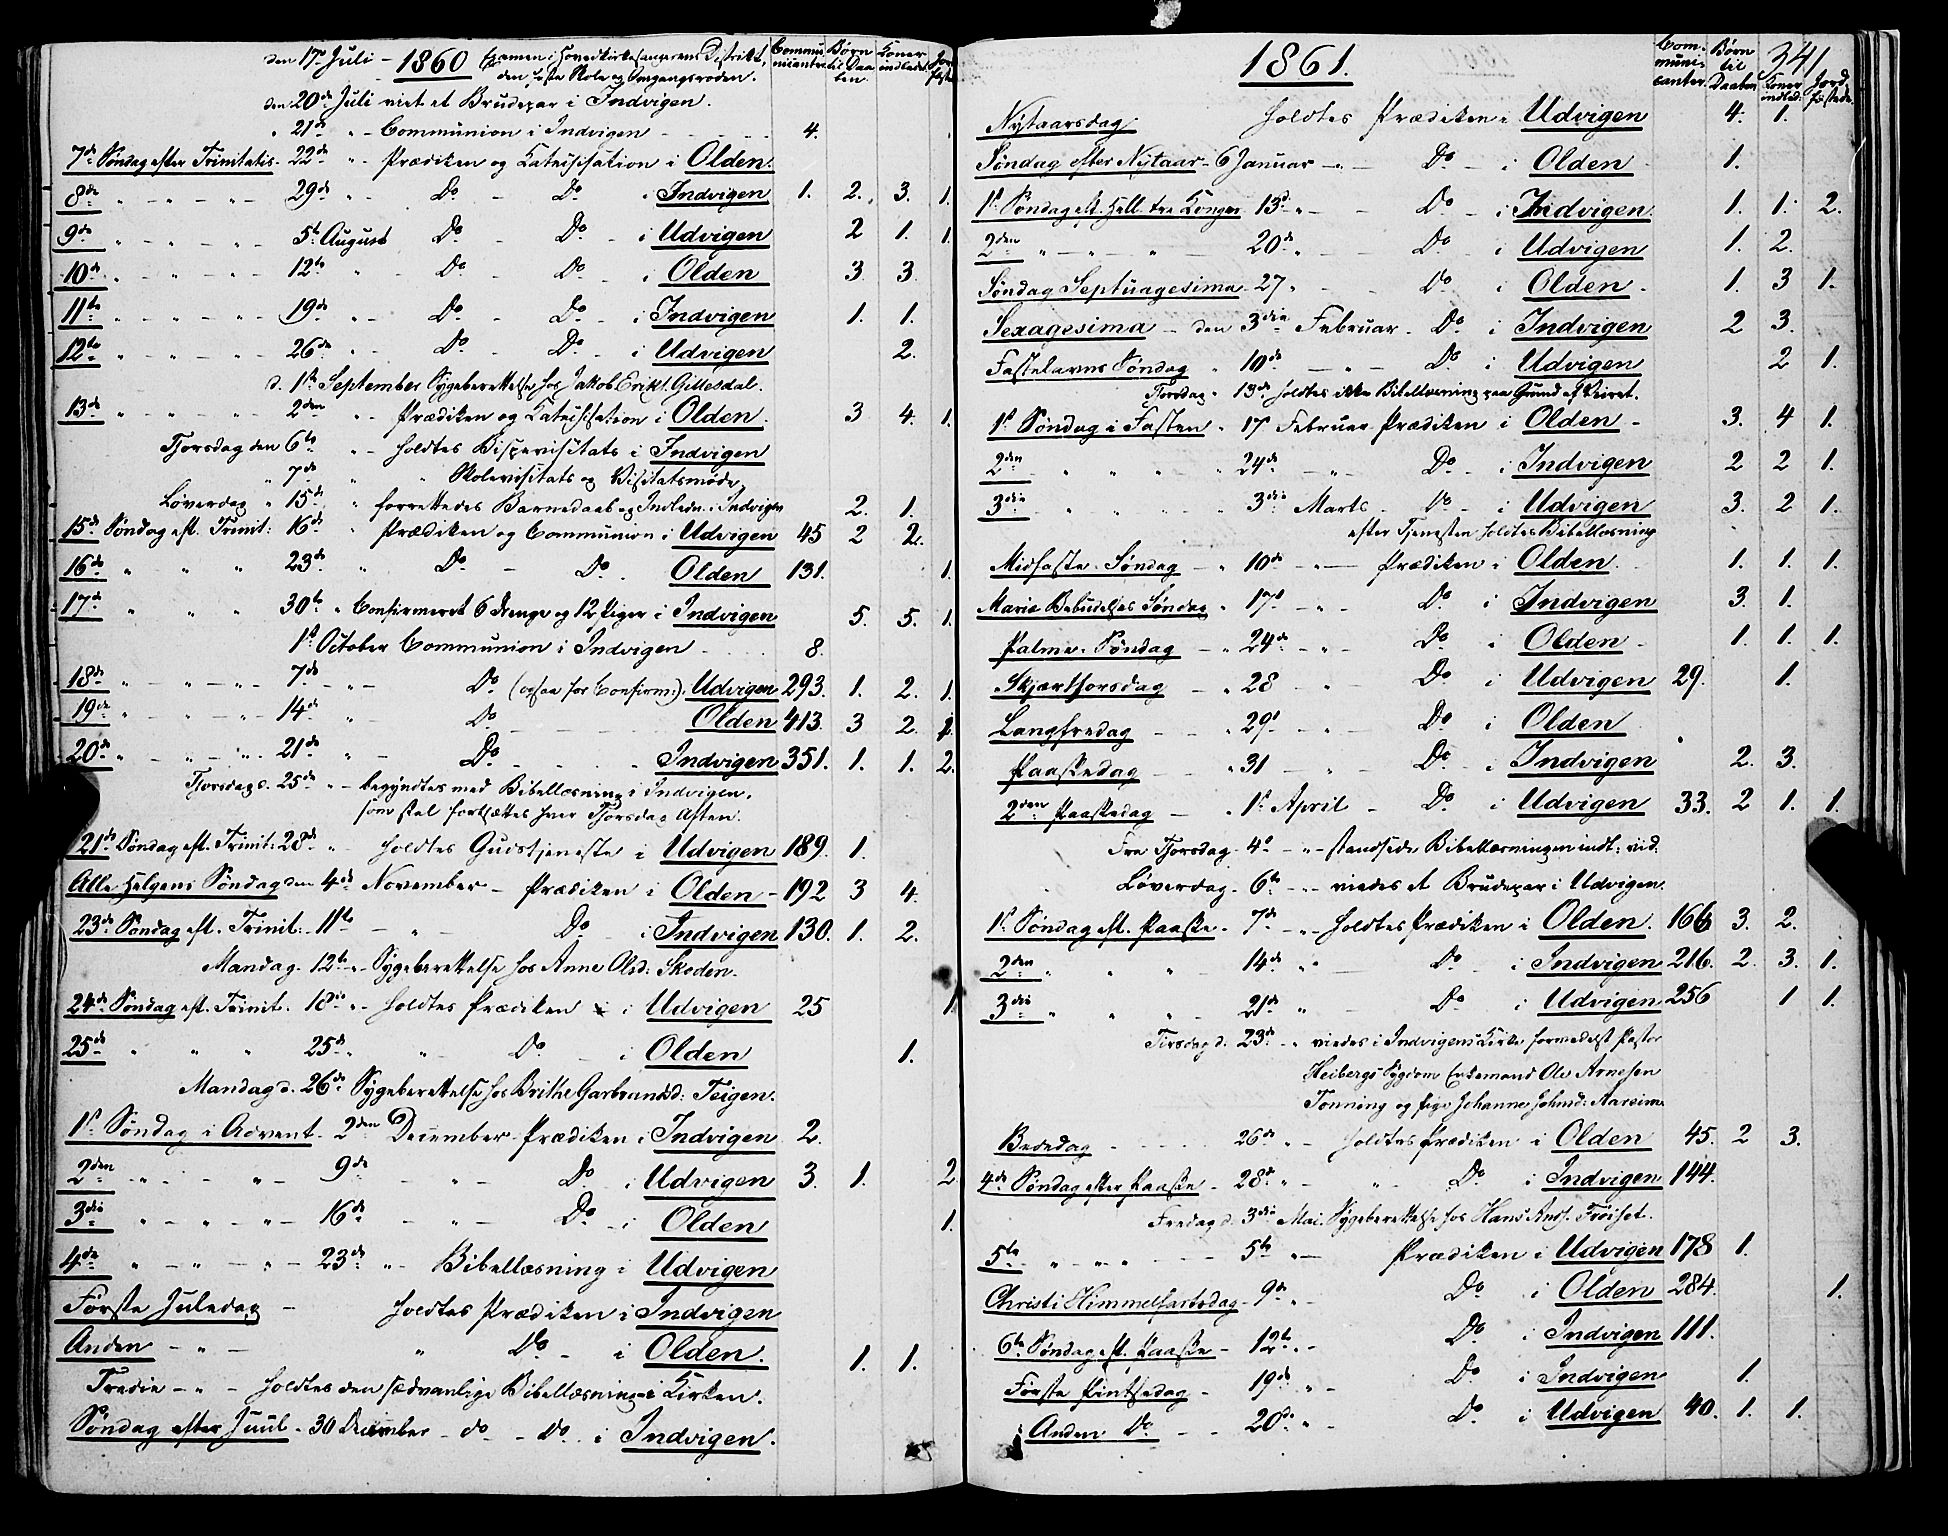 den 17de Juli - 1860 Examen i Hovedkirkesangerens Distrikt, Communicanter Børn til Daaben Koner indledede Jordfæstede
den faste Skole og Omgangsroden.
den 20de Juli viet et Brudepar i Indvigen.
" 21de " - Communion i Indvigen 4.
7de Søndag efter Trinitatis - 22de " - Prædiken og Katechisation i Olden.
8de " - " - " - 29de " - Do - Do i Indvigen 1. 2. 3. 1.
9de " - " - " - 5te August Do - Do i Udvigen 2 1. 1.
10de " - " - " - 12te " - Do - Do i Olden 3 3.
11te " - " - " - 19de " - Do - Do i Indvigen 1. 1.
12te " - " - " - 26de " - Do - Do i Udvigen 2.
d. 1ste September Sygeberettelse hos Jakob Eriks. Gittesdal.
13de " - " - " - 2den " Prædiken og Katechisation i Olden. 3 4. 1.
Thorsdag den 6te " - holdtes Bispevisitats i Indvigen
" 7de " " Skolevisitats og Visitatsmøde,
Løverdag " 15de " forrettedes Barnedaab og Indledn. i Indvigen 2. 1.
15de Søndag eft. Trinit: 16de " Prædiken og Communion i Udvigen 45 2 2.
16de " " " 23de " Do - Do. Olden 131. 1.
17de " " " 30te " Confirmeret 6 Drenge og 12 Piger i Indvigen 5. 5. 1.
1ste October Communion i Indvigen 8.
18de " - " - " - 7de - " - Do (ogsaa for Confirm.) Udvigen 293. 1. 2. 1.
19de " - " - " - 14de " Do Olden 413. 3 2. 1.
20de " - " - " - 21de " - Do Indvigen 351. 1. 1. 2.
Thorsdag d. 25de " - begyndtes med Bibellæsning i Indvigen,
som skal fortsættes hver Thorsdag Aften.
21de Søndag eft. Trinit: 28de " holdtes Gudstjeneste i Udvigen 189. 1.
Alle Helgens Søndag den 4de November - Prædiken i Olden - 192 3 4.
23de Søndag eft. Trinit: 11te - " - Do - i Indvigen 130. 1. 2.
Mandag - 12te " - Sygeberettelse hos Anne Olsd: Skoden.
24de Søndag eft. Trinit. 18de " - holdtes Prædiken i Udvigen 25 1
25de " " " 25de " " - Do - i Olden 1.
Mandag d. 26de Sygeberettelse hos Brithe Garbrandsd: Teigen.
1ste Søndag i Advent - 2den December Prædiken i Indvigen 2.
2den " - " - 9de - " - Do - i Udvigen 3. 1. 2
3die " - " - " - 16de - " - Do - i Olden 1.
4de " - " - " - 23de " - Bibellæsning i Udvigen
Første Juledag - holdtes Prædiken i Indvigen
Anden - " - " Do - i Olden. 1. 1.
Tredie - " - holdtes den sædvanlige Bibellæsning i Kirken.
Søndag efter Juul - 30 December - do - Do - i Indvigen.
1861. Communicanter. Børn til Daaben 341 Koner indled: Jordfæstede.
Nytaarsdag holdtes Prædiken i Udvigen 4. 1.
Søndag efter Nytaar - 6 Januar - " - Do - i Olden 1.
1ste Søndag eft. Hell. tre Konger 13de " - Do - i Indvigen. 1. 1. 2.
2den " - " - " 20de " - Do i Udvigen 1. 2.
Søndag Septuagesima - 27 " - Do i Olden - 1. 3 1.
Sexagesima - den 3die Februar - Do i Indvigen 2 3.
Fastelavns Søndag " 10de " - Do i Udvigen 2 1.
Thorsdag " 13de holdtes ikke Bibellæsning paa Grund af Veiret.
1ste Søndag i Fasten " 17de Februar Prædiken i Olden - 3. 4 1.
2den " " " 24de " - Do - i Indvigen 2 2 1.
3die " " " 3die Marts - Do - i Udvigen 3. 2 1.
efter Tjenesten holdtes Bibellæsning
Midfaste Søndag - " 10de " - Prædiken i Olden 1. 1. 1.
Mariæ Bebudelses Søndag " 17de - " - Do i Indvigen 3. 1.
Palme Søndag - " 24de - " - Do i Olden - 1. 1. 1.
Skjærthorsdag - " 28 " Do i Udvigen 29. 1.
Langfredag - " 29de " - Do i Olden
Paaskedag - " 31 - " - Do i Indvigen 2. 3.
2den Paaskedag - " 1ste April - Do i Udvigen 33. 2 1. 1.
Fra Thorsdag - 4de - " - standsede Bibellæsningen indt: vid:
Løverdag - 6te - " - viedes et Brudepar i Udvigen.
1ste Søndag eft. Paaske - 7de - " - holdtes Prædiken i Olden. 166 3. 2.
2den " " " 14de " Do - i Indvigen 216. 2. 3. 1.
3die " " " - 21de " - Do i Udvigen 256 1 1.
Tirsdag d. 23de " viedes i Indvigens Kirke formedelst Pastor
Heibergs Sygdom Enkemand Ole Arnesen
Tonning og Pige Johanne Johnsd: Aareim
Bededag 26de " - holdtes Prædiken i Olden 45. 2 3.
4de Søndag efter Paaske - 28de " - " - Do i Indvigen 144.
Fredag d. 3die Mai. Sygeberettelse hos Hans Ands. Frøiset.
5te - " - " - " - 5te " - Prædiken i Udvigen 178 1.
Christi Himmelfartsdag - 9de " - Do i Olden 284. 1.
6te Søndag eft. Paaske - 12te " - Do i Indvigen 111.
Første Pintsedag - 19de " - Do i Indvigen 1.
Anden Do - 20de " - Do i Udvigen 40. 1. 1.